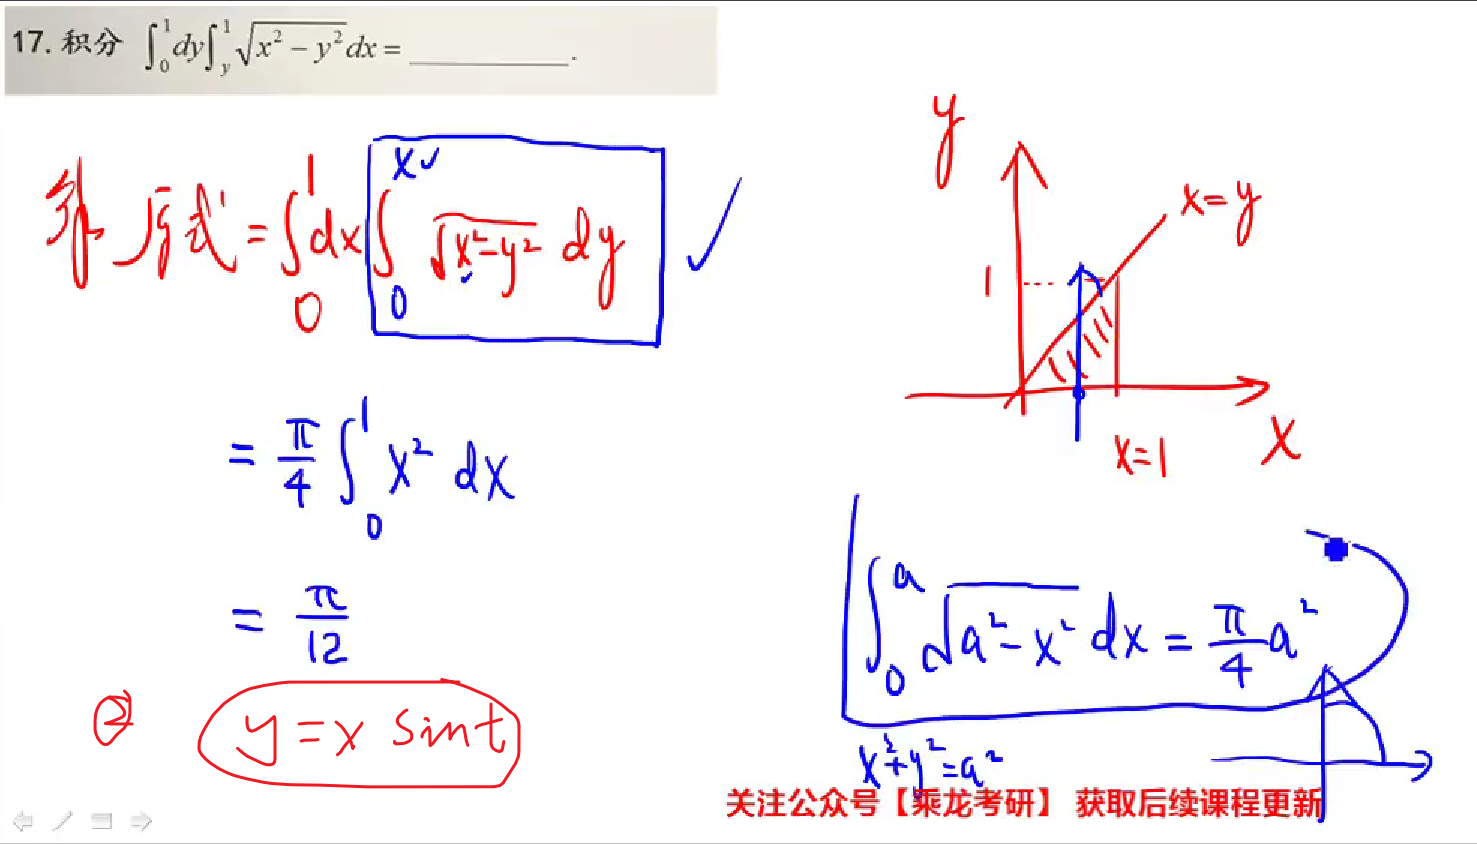 17. 积分 ∫₀¹dy∫_y¹√(x² − y²)dx = ________.
解 原式 = ∫₀¹dx∫₀ˣ √(x²−y²) dy
= π/4 ∫₀¹ x² dx
= π/12
② y = x sint
y
x=y
1
x=1
x
∫₀ᵃ √(a²−x²) dx = π/4 a²
x²+y²=a²
关注公众号【乘龙考研】 获取后续课程更新